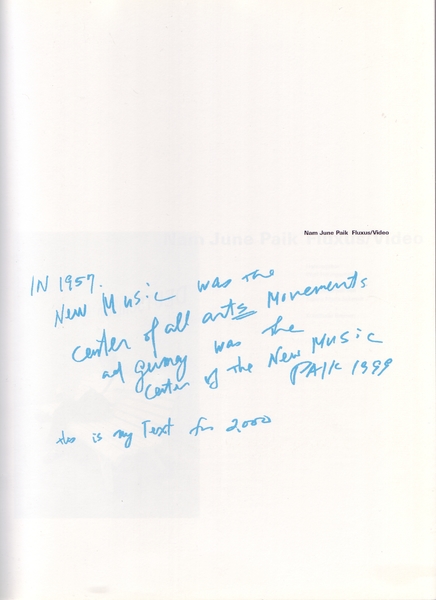 Nam June Paik Fluxus/Video
IN 1957.
New Music was the
center of all arts Movements
ad Germany was the
center of the New Music
PAIK 1999
this is my Text for 2,000